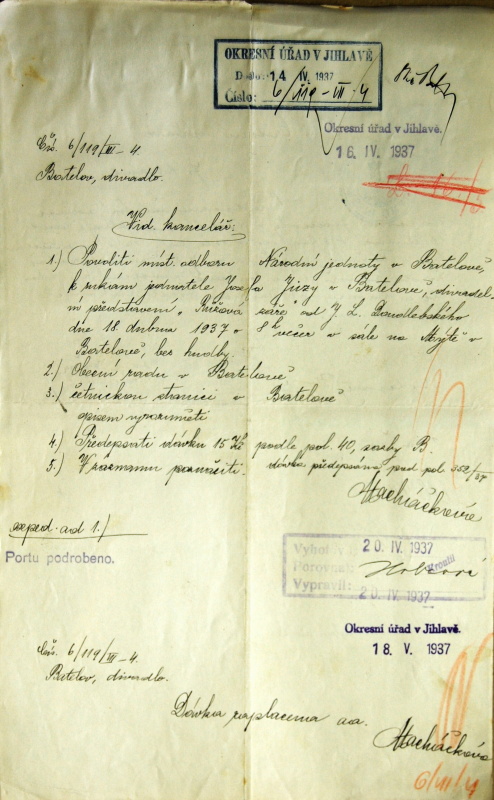 OKRESNÍ ÚŘAD V JIHLAVĚ
Došlo: 14 IV. 1937
Číslo: 6/119-III-4
Okresní úřad v Jihlavě.
16. IV. 1937
Čís. 6/119/III-4.
Batelov, divadlo.
Vid. kancelář:
1.) Povoliti míst. odboru Národní jednoty v Batelově,
k rukám jednatele Josefa Jůzy v Batelově, divadel
ní představení „Růžová záře" od J. L. Doudlebského
dne 18 dubna 1937 o 8 h večer v sále na Mýtě v
Batelově, bez hudby.
2.) Obecní radu v Batelově
3.) četnickou stanici v Batelově
opisem vyrozuměti
4.) Předepsati dávku 15 Kč podle pol. 40, sazby B.
5.) V záznamu poznačiti. dávka předepsána pod pol 352/37
Macháčková
exped. ad 1.)
Portu podrobeno.
Vyhot
20. IV. 1937
Porovnal:
Vypravil: 20. IV. 1937
Okresní úřad v Jihlavě.
18. V. 1937
Čís. 6/119/III-4.
Batelov, divadlo.
Dávka zaplacena aa.
Macháčková
6/III/4